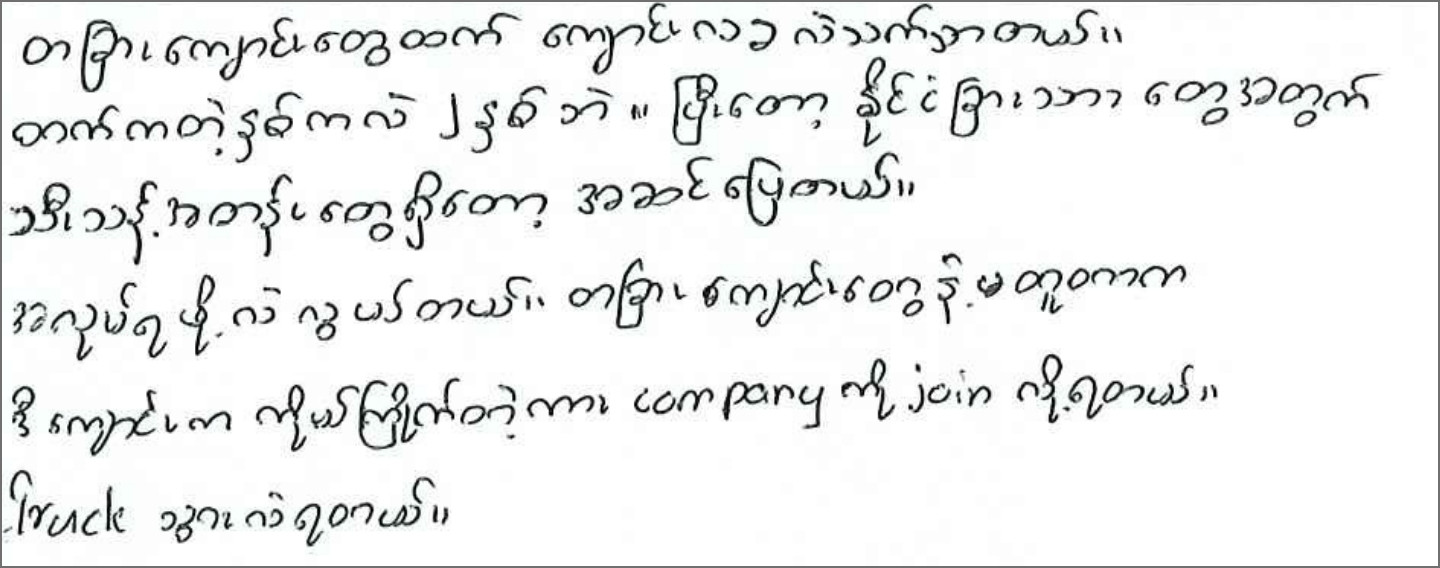 တခြားကျောင်းတွေထက် ကျောင်းလခ လဲသက်သာတယ်။
တက်ကတဲ့နှစ်ကလဲ ၂နှစ် ဘဲ ။ ပြီးတော့ နိုင်ငံခြားသား တွေအတွက်
သီးသန့်အတန်းတွေရှိတော့ အဆင်ပြေတယ်။
အလုပ်ရဖို့လဲ လွယ်တယ်။ တခြား ကျောင်းတွေနဲ့မတူတာက
ဒီ ကျောင်းက ကိုယ်ကြိုက်တဲ့ကား company ကို join လို့ရတယ်။
Truck သွားလဲရတယ်။